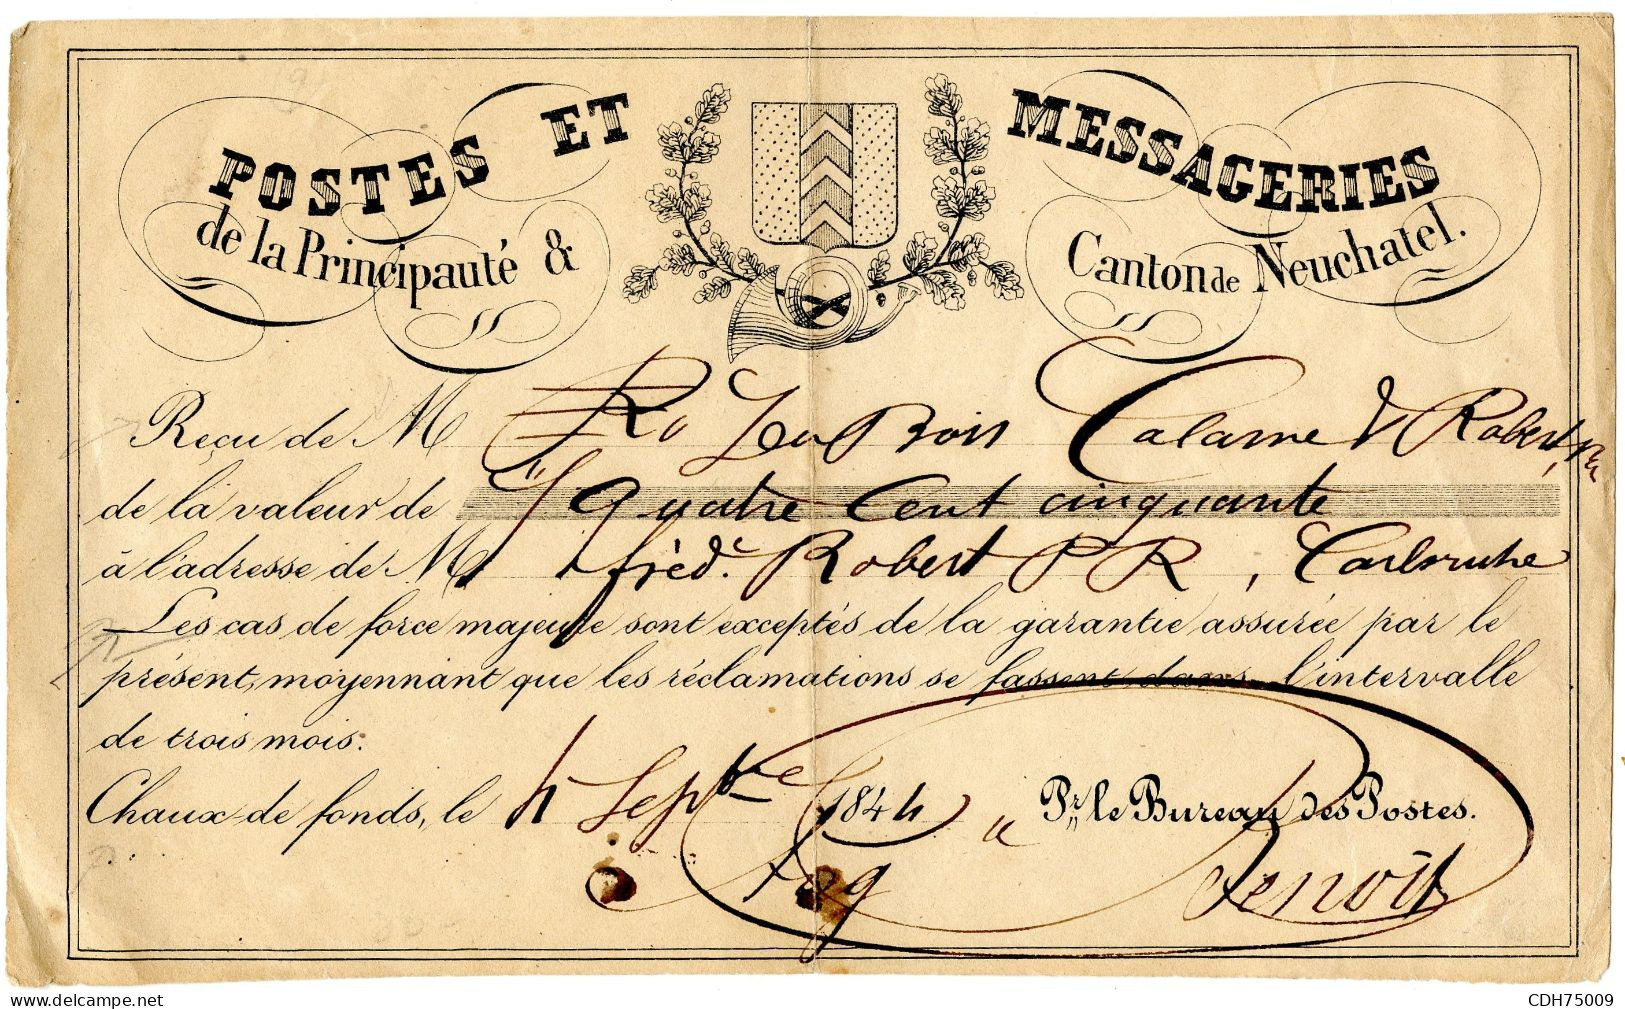 POSTES ET MESSAGERIES
de la Principauté & Canton de Neuchatel.
Reçu de M Calame & Robert
de la valeur de Quatre Cent cinquante
à l'adresse de M fréd. Robert P R, Carlsruhe
Les cas de force majeure sont exceptés de la garantie assurée par le
présent, moyennant que les réclamations se fassent dans l'intervalle
de trois mois.
Chaux-de fonds, le 4 Septbre 1844 Pr. le Bureau des Postes.
Benoit
CDH75009